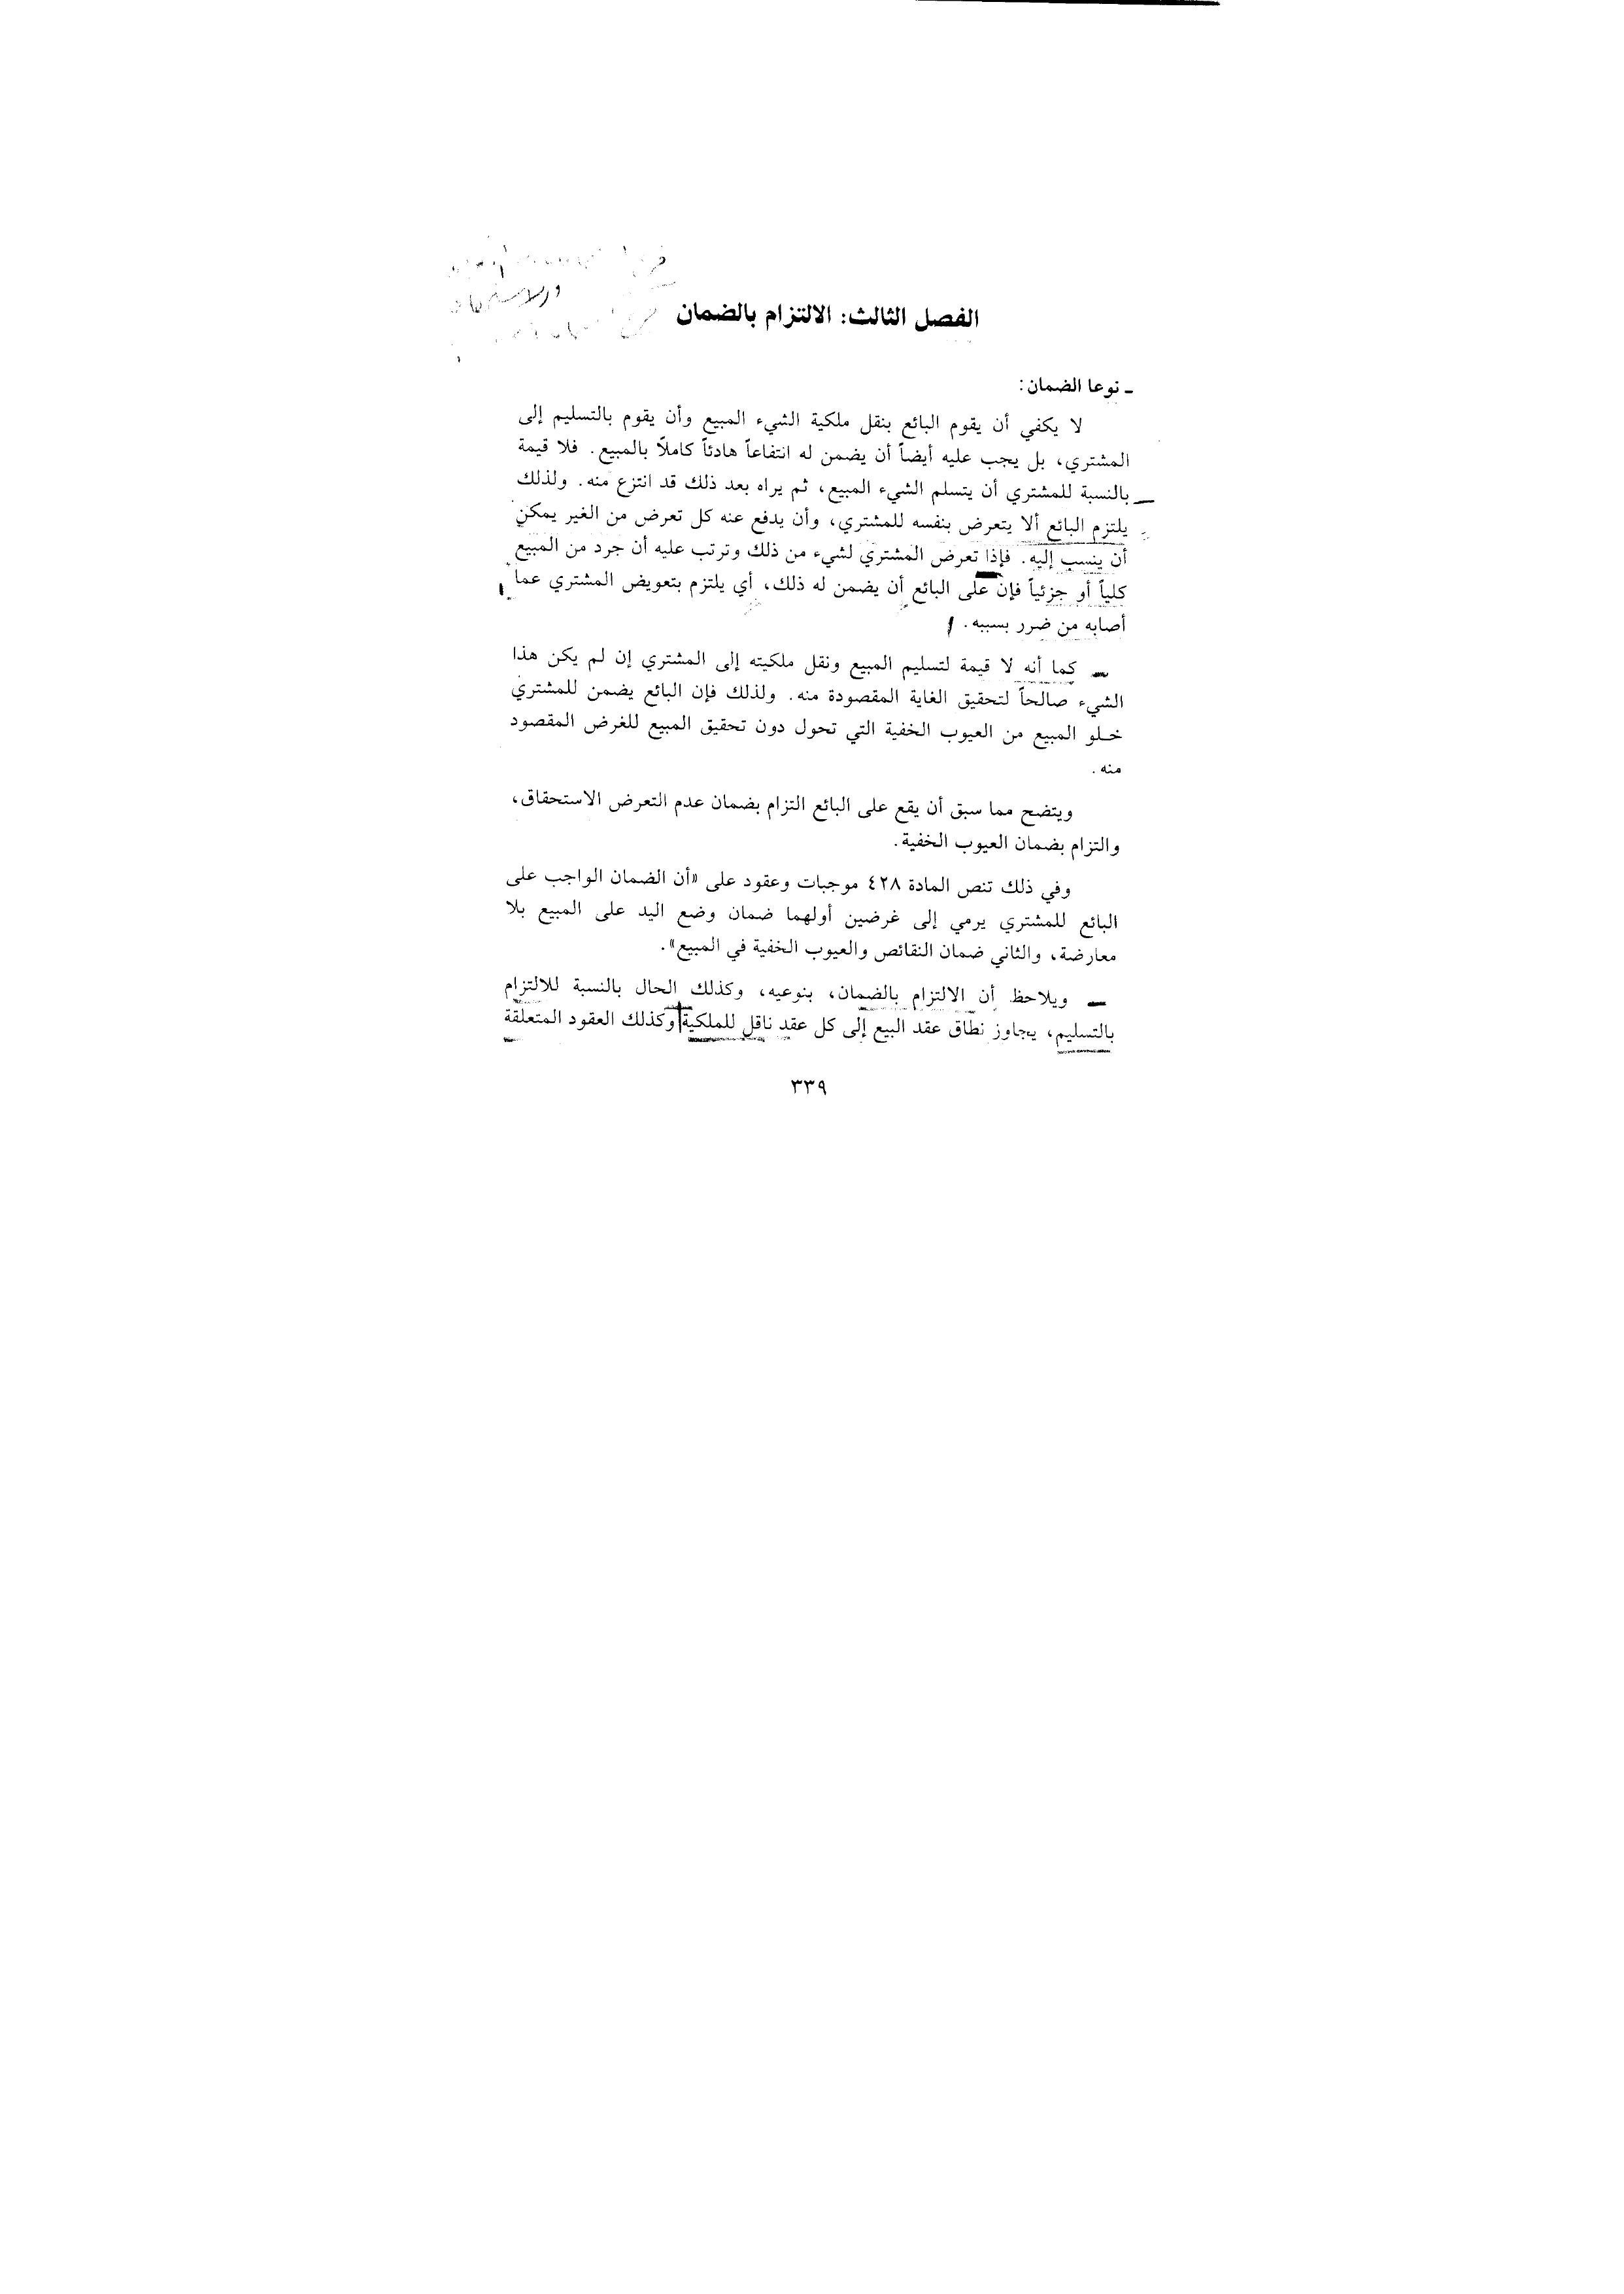 الفصل الثالث: الالتزام بالضمان
ـ نوعا الضمان:
لا يكفي أن يقوم البائع بنقل ملكية الشيء المبيع وأن يقوم بالتسليم إلى
المشتري، بل يجب عليه أيضاً أن يضمن له انتفاعاً هادئاً كاملاً بالمبيع. فلا قيمة
بالنسبة للمشتري أن يتسلم الشيء المبيع، ثم يراه بعد ذلك قد انتزع منه. ولذلك
يلتزم البائع ألا يتعرض بنفسه للمشتري، وأن يدفع عنه كل تعرض من الغير يمكن
أن ينسب إليه. فإذا تعرض المشتري لشيء من ذلك وترتب عليه أن جرد من المبيع
كلياً أو جزئياً فإن على البائع أن يضمن له ذلك، أي يلتزم بتعويض المشتري عما
أصابه من ضرر بسببه.
كما أنه لا قيمة لتسليم المبيع ونقل ملكيته إلى المشتري إن لم يكن هذا
الشيء صالحاً لتحقيق الغاية المقصودة منه. ولذلك فإن البائع يضمن للمشتري
خلو المبيع من العيوب الخفية التي تحول دون تحقيق المبيع للغرض المقصود
منه.
ويتضح مما سبق أن يقع على البائع التزام بضمان عدم التعرض الاستحقاق،
والتزام بضمان العيوب الخفية.
وفي ذلك تنص المادة ٤٢٨ موجبات وعقود على «أن الضمان الواجب على
البائع للمشتري يرمي إلى غرضين أولهما ضمان وضع اليد على المبيع بلا
معارضة، والثاني ضمان النقائص والعيوب الخفية في المبيع».
ـ ويلاحظ أن الالتزام بالضمان، بنوعيه، وكذلك الحال بالنسبة للالتزام
بالتسليم، يجاوز نطاق عقد البيع إلى كل عقد ناقل للملكية وكذلك العقود المتعلقة
٣٣٩